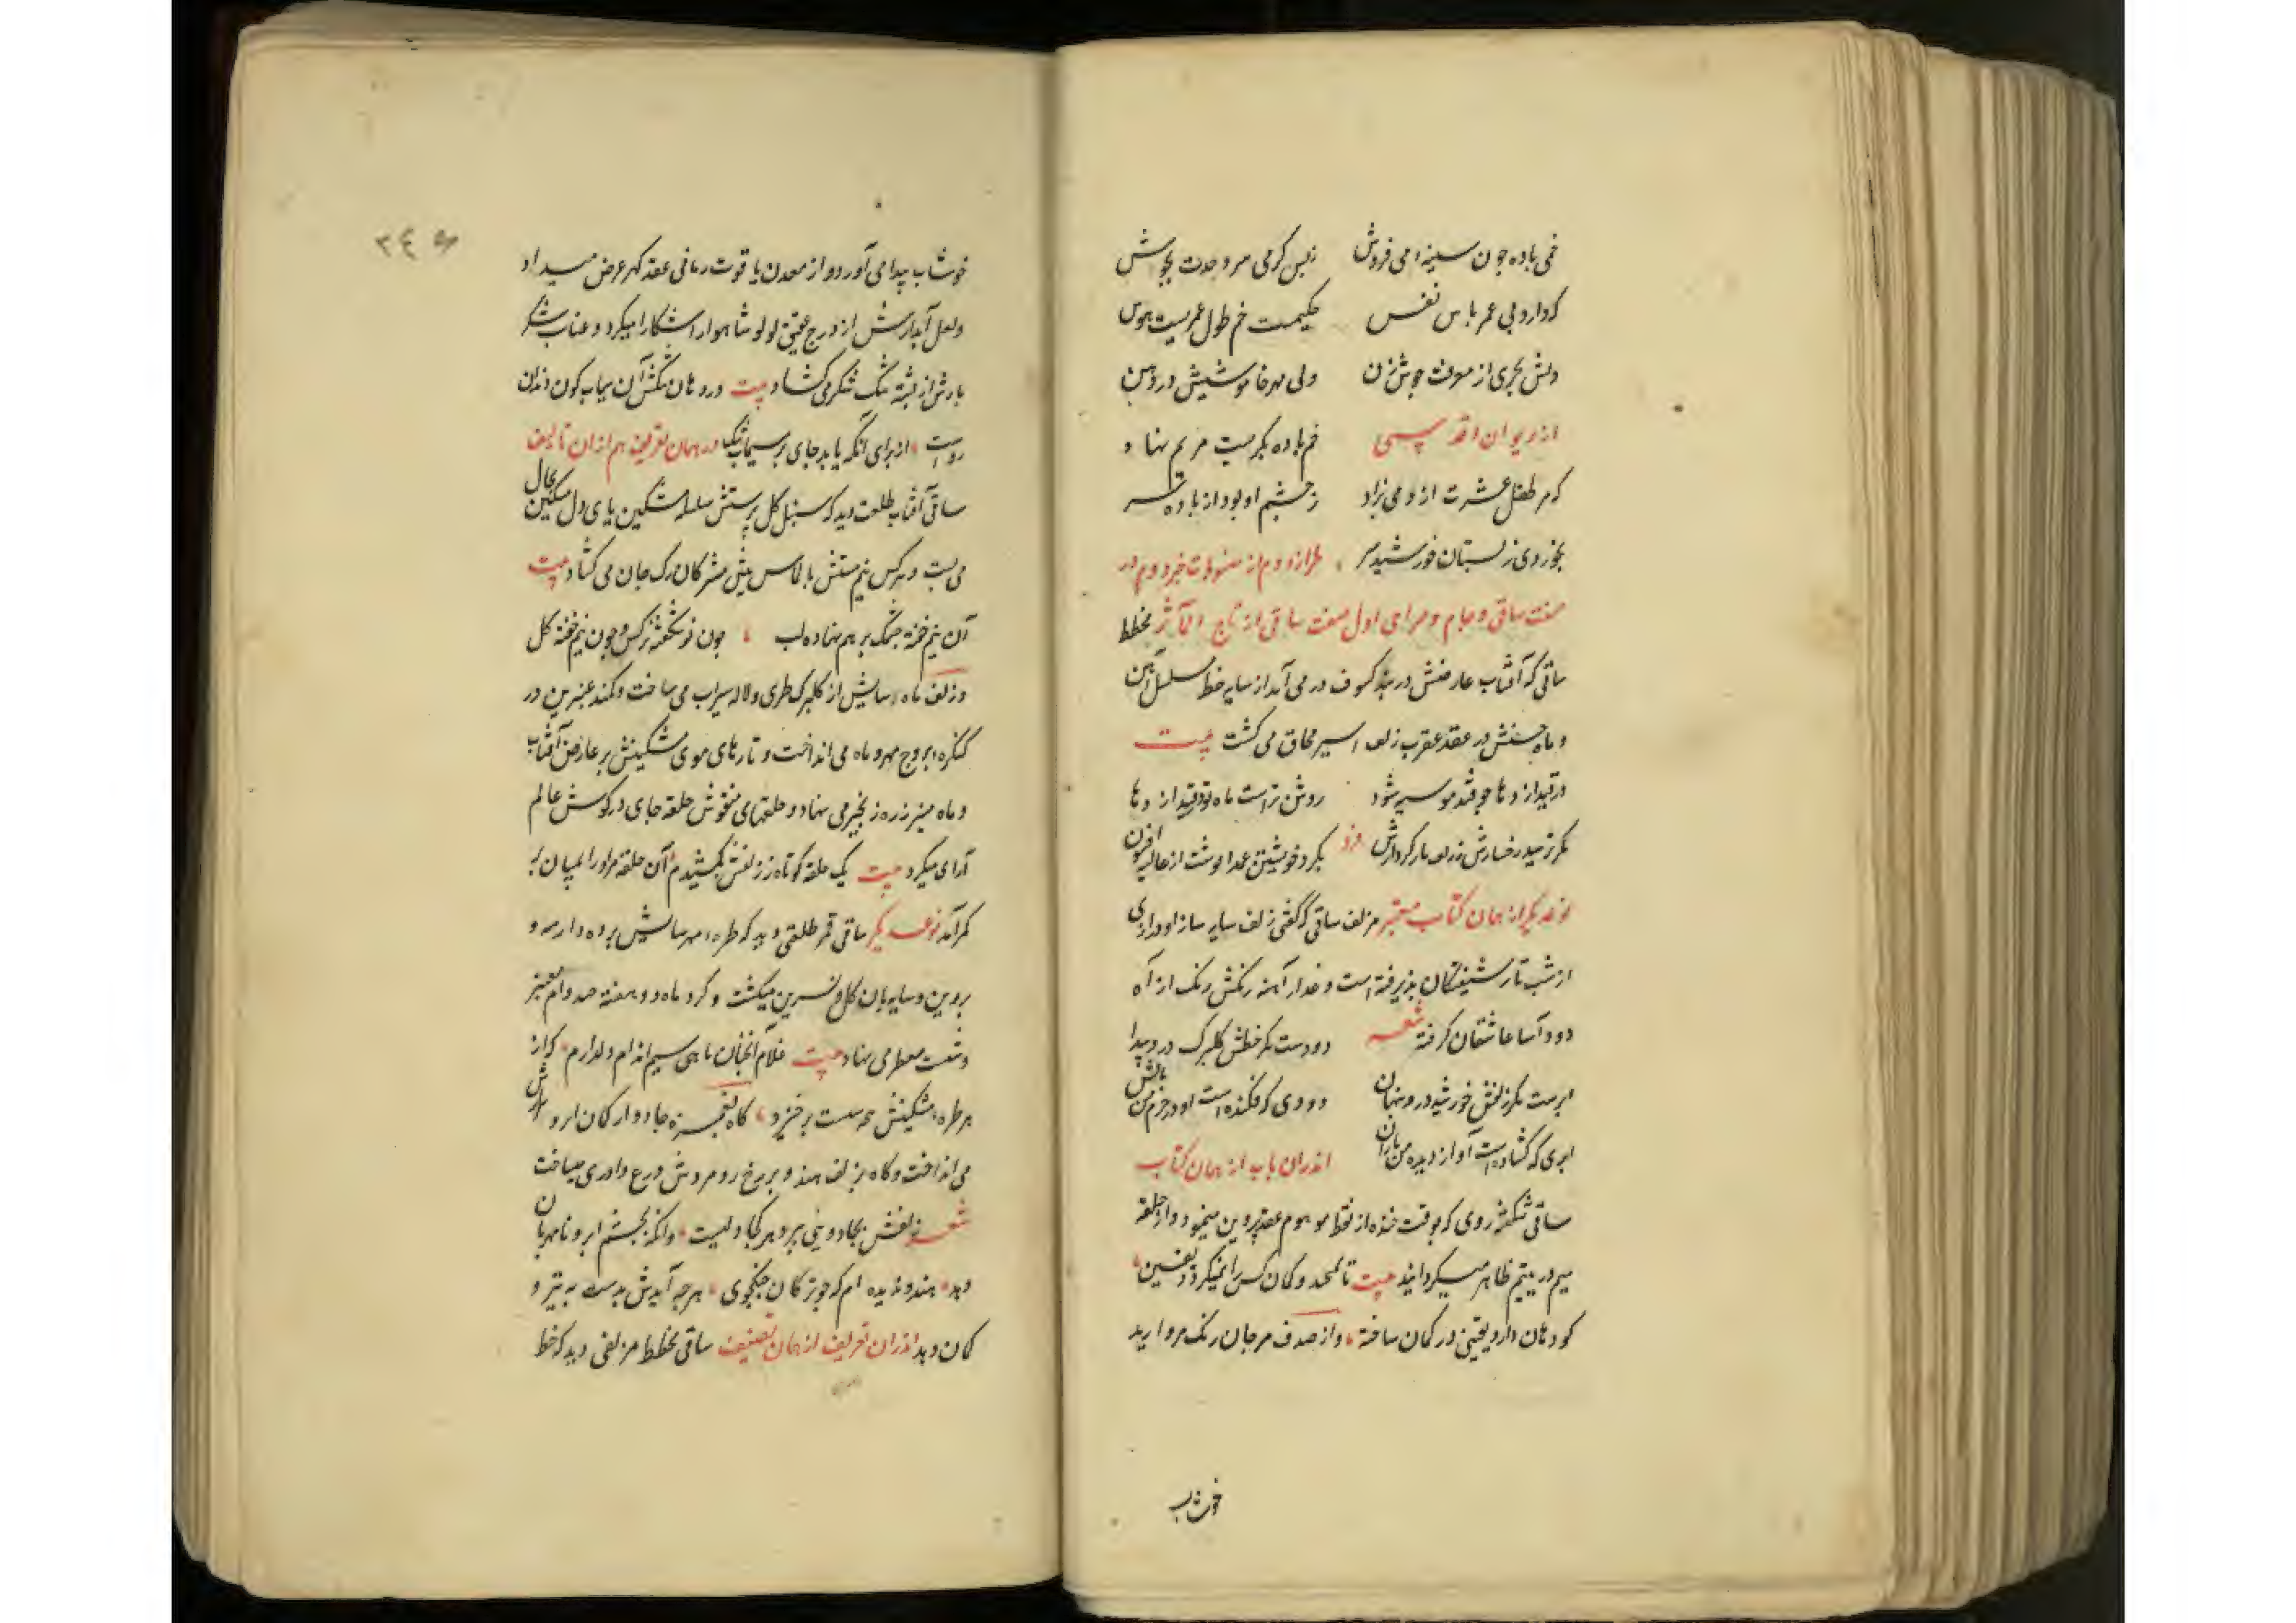 خمی باده چون سینه می فروش زبس گرمی مروحدت بجوش
که داروی عمر باس نفس حکیمست خم طول عمریست هوس
دلش بحری از معرفت جوش زن ولی مهر خاموشیش در دهن
از دیوان اقدسی خم باده بکریست مریم نهاد
که هر طفل عشرت ازو می نزاد ز چشم او بود از باده
بجوزوی زبستان خورشید طراز دوم از
صفت ساقی و جام و صراحی اول صفت ساقی از تاج المآثر مخطط
ساقی که آفتاب عارضش در بند کسوف در می آمد از سایه خط مسلسل آیین
و ماه حسنش در عقد عقرب زلف اسیر محاق می گشت بیت
در قید اژدها چو فتد مو سیر شود روشن تراست ماه تو در قید اژدها
مگر ترسید رخسارش ز زلف مار کردارش فرد بگرد خویشتن عمدا نوشت از غالیه افسون
نوعدیگر از همان کتاب معتبر مزلف ساقی که گفتی زلف سایه ساز او درازی
از شب تار شیفتگان پذیرفته است و عذار آینه رنگش رنگ از آه
دود آسا عاشقان گرفته شعر دودست مگر خطش گلبرگ درو پیدا
ابرست مگر زلفش خورشید درو پنهان دودی که فکنده است او در خرمن من بالش
ابری که گشاده است او از دیده من باران اندران باب از همان کتاب
ساقی شکفته روی که بوقت خنده از نقطه موهوم عقد پروین مینمود و از حلقه
میم در یتیم ظاهر میگردانید بیت تا ملحد و گمان کس را نمیکرد یقین
کو دهان دارد یقینی در گمان ساخته و از صدف مرجان رنگ مروارید
خوشاب
۳۴۵
خوشاب پیدا می آورد و از معدن یاقوت رمانی عقد گهر عرض میداد
و لعل آبدارش از درج عقیق لولو شاهوار آشکارا میکرد و عناب شکر
بارش از پسته تنگ شکر می گشاد بیت در دهان تنگش آن سیماب گون دندان
رواست از برای آنکه یابد جای بر سیماب تنگ در همان تعریف هم از ان تالیف
ساقی آفتاب طلعت دید که سنبل گل پرستش سلسله مشکین بپای دل مسکین بحال
می بست و نرگس نیم مستش بالماس نیش مژگان رگ جان می گشاد بیت
آن نیم خفته چشمک بر هم نهاده لب چون نو شکفته نرگس و چون نیم خفته گل
و زلف ماه رسایش از گلبرگ طری و لاله سیراب می ساخت و کمند عنبرین در
کنگره بروج مهر و ماه می انداخت و تارهای موی مشکینش بر عارض آفتاب
و ماه منیر زره زنجیر می نهاد و حلقهای منقوش حلقه جای در گوش عالم
آرای میکرد بیت یک حلقه کوتاه ز زلفش بکشیدم آن حلقه مر او را بمیان بر
کمر آمد نوعدیگر ساقی قمر طلعتی دید که طره مهر سایش پرده دار مه و
پروین و سایه بان گل و نسرین میگشت و گرد ماه دو هفته صد دام عنبر
و شست معطر می نهاد بیت غلام آنچنان ماهی سیم اندام دلدارم که از
هر طره مشکینش صد مست برخیزد گاه بغمزه جادو از کمان ابرو
می انداخت و گاه بزلف هندو بر رخ رومروش درع داودی میساخت
شعر زلفش بجادویی ببرد هر کجا دلیست وانگه بچشم ابرو نامهربان
دهد هندو ندیده ام که چو ترکان جنگجوی هر چه آیدش بدست به تیر و
کمان دهد اندران تعریف از همان تصنیف ساقی مخطط مزلفی دید که خط